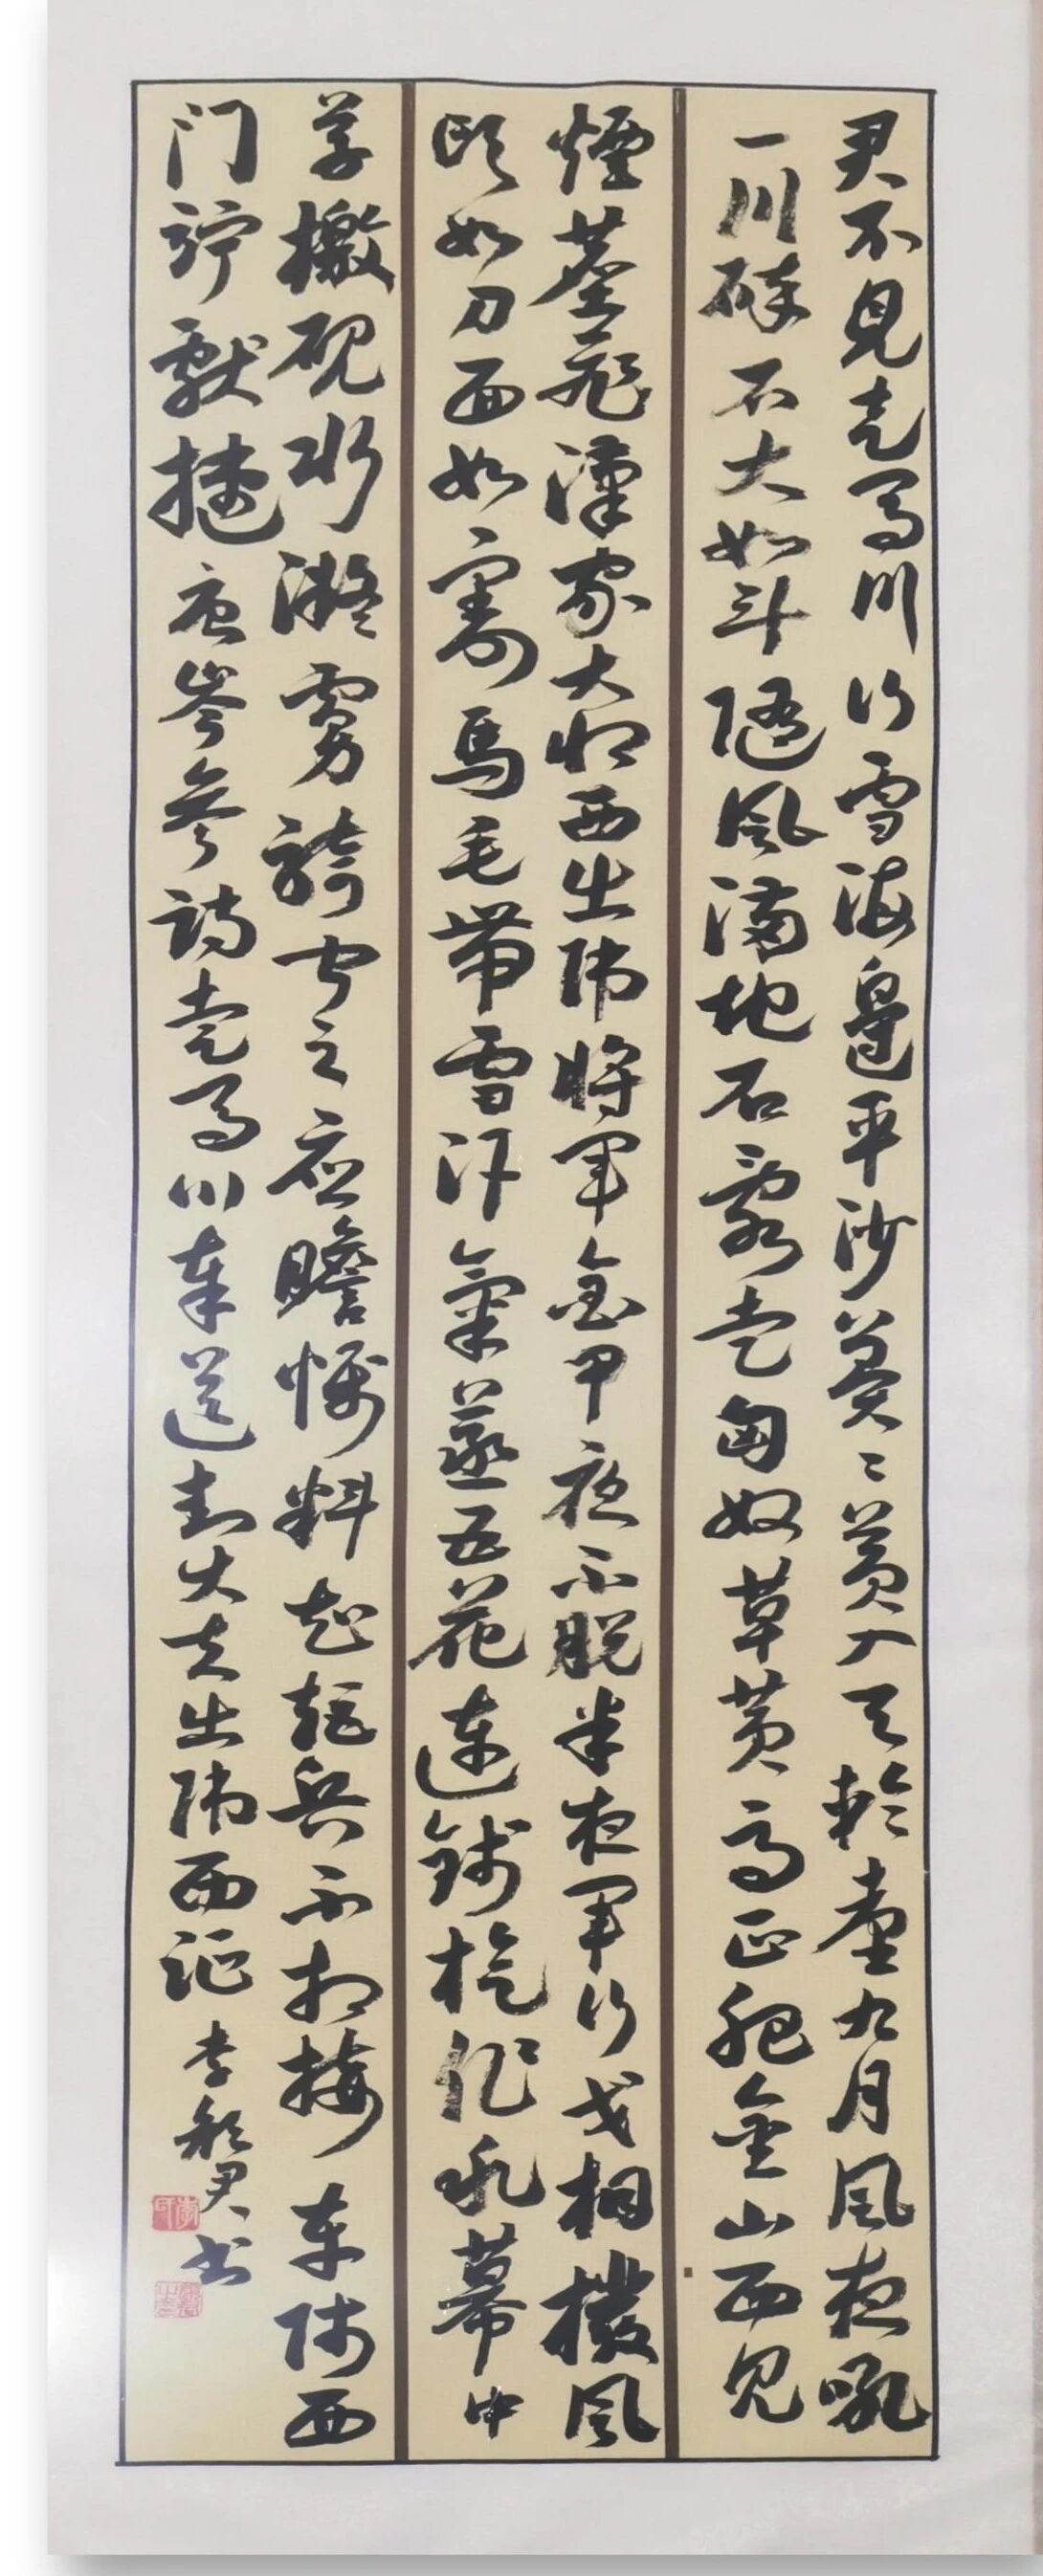 君不見走馬川行雪海邊平沙莽々黄入天輪臺九月風夜吼
一川碎石大如斗隨風滿地石亂走匈奴草黄馬正肥金山西見
煙塵飛漢家大将西出師將軍金甲夜不脱半夜軍行戈相撥風
頭如刀面如割馬毛帶雪汗氣蒸五花連錢旋作冰幕中
草檄硯水凝虜騎聞之應膽懾料知短兵不敢接車師西
门竚獻捷唐岑參詩走馬川奉送封大夫出師西征李君書